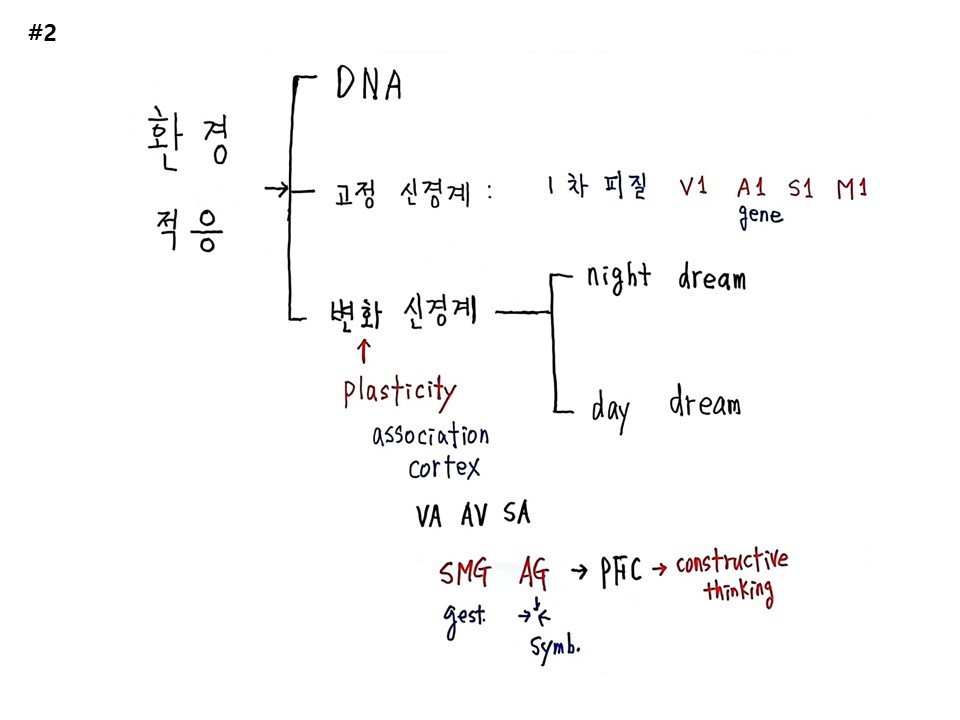 #2
DNA
환경
적응
→ 고정 신경계 : 1차 피질 V1 A1 S1 M1
gene
변화 신경계
night dream
day dream
↑
plasticity
association
cortex
VA AV SA
SMG AG → PFC → constructive
thinking
gest. →
symb.